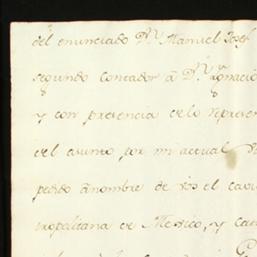 del enunciado Dn. Manuel Josef
segundo contador a Dn. Ignacio
y con presencia de lo represen
del asunto por mi actual
pedido a nombre de vos el cavi
tropolitana de Mexico, y